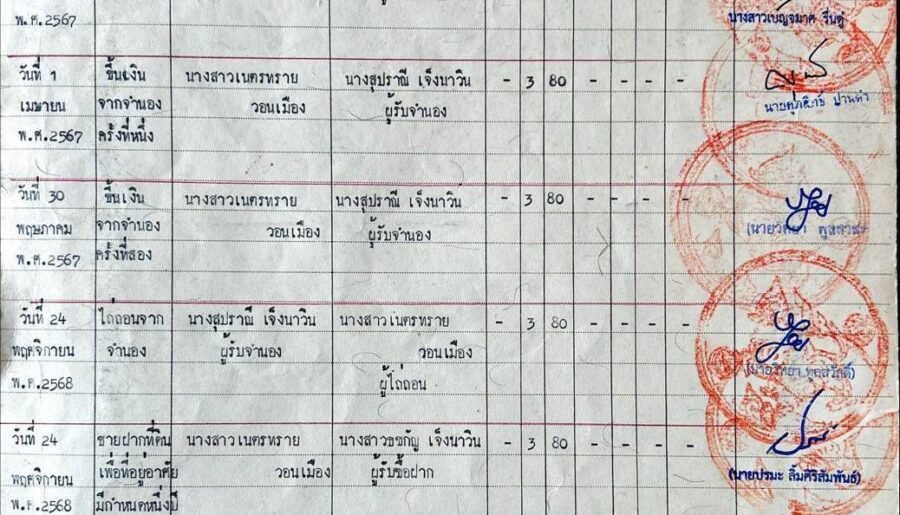 พ.ศ.2567
นางสาวเบญจมาศ รื่นคู่
วันที่ 1 ขึ้นเงิน นางสาวเนตรทราย นางสุปราณี เจ็งนาวิน - 3 80 - - - -
เมษายน จากจำนอง วอนเมือง ผู้รับจำนอง
พ.ศ.2567 ครั้งที่หนึ่ง
วันที่ 30 ขึ้นเงิน นางสาวเนตรทราย นางสุปราณี เจ็งนาวิน - 3 80 - - - -
พฤษภาคม จากจำนอง วอนเมือง ผู้รับจำนอง
พ.ศ.2567 ครั้งที่สอง
วันที่ 24 ไถ่ถอนจาก นางสุปราณี เจ็งนาวิน นางสาวเนตรทราย - 3 80 - - - -
พฤศจิกายน จำนอง ผู้รับจำนอง วอนเมือง
(นายวิทยา พูลสวัสดิ์)
พ.ศ.2568 ผู้ไถ่ถอน
วันที่ 24 ขายฝากที่ดิน นางสาวเนตรทราย นางสาวชชกัญ เจ็งนาวิน - 3 80 - - - -
พฤศจิกายน เพื่อที่อยู่อาศัย วอนเมือง ผู้รับซื้อฝาก
(นายปรมะ ลิ้มศิริสัมพันธ์)
พ.ศ.2568 มีกำหนดหนึ่งปี